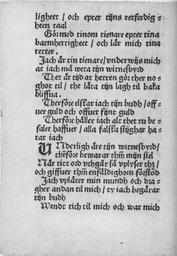 ligheet / och epter tijns retferdig
heetz taal
Gör med tinom tienare epter tina
barmhertigheet / och lär mich tina
retter.
Jach är tin tienare / vnderwijs mich
at jach må weta tijn witnesbyrd
Thet är tijd at herren gör ther no
ghot til / the låta tijn lagh til
bliffua.
Therföre elskar iach tijn budh / off
uer guld och offuer fijnt guld
Therföre håller iach alt thet tu be
falet haffuer / alla falska stijghar ha
tar iach
Underligh äre tijn witnesbyrd /
therföre bewarar thm mijn siel
När titt ord vpgår så vplyser thz /
och giffuer thm enfåldighom förstod
Jach vplåter min mundh och dia
gher andan til mich / ty iach begärar
tijn budh
Wendt tich til mich och war mich